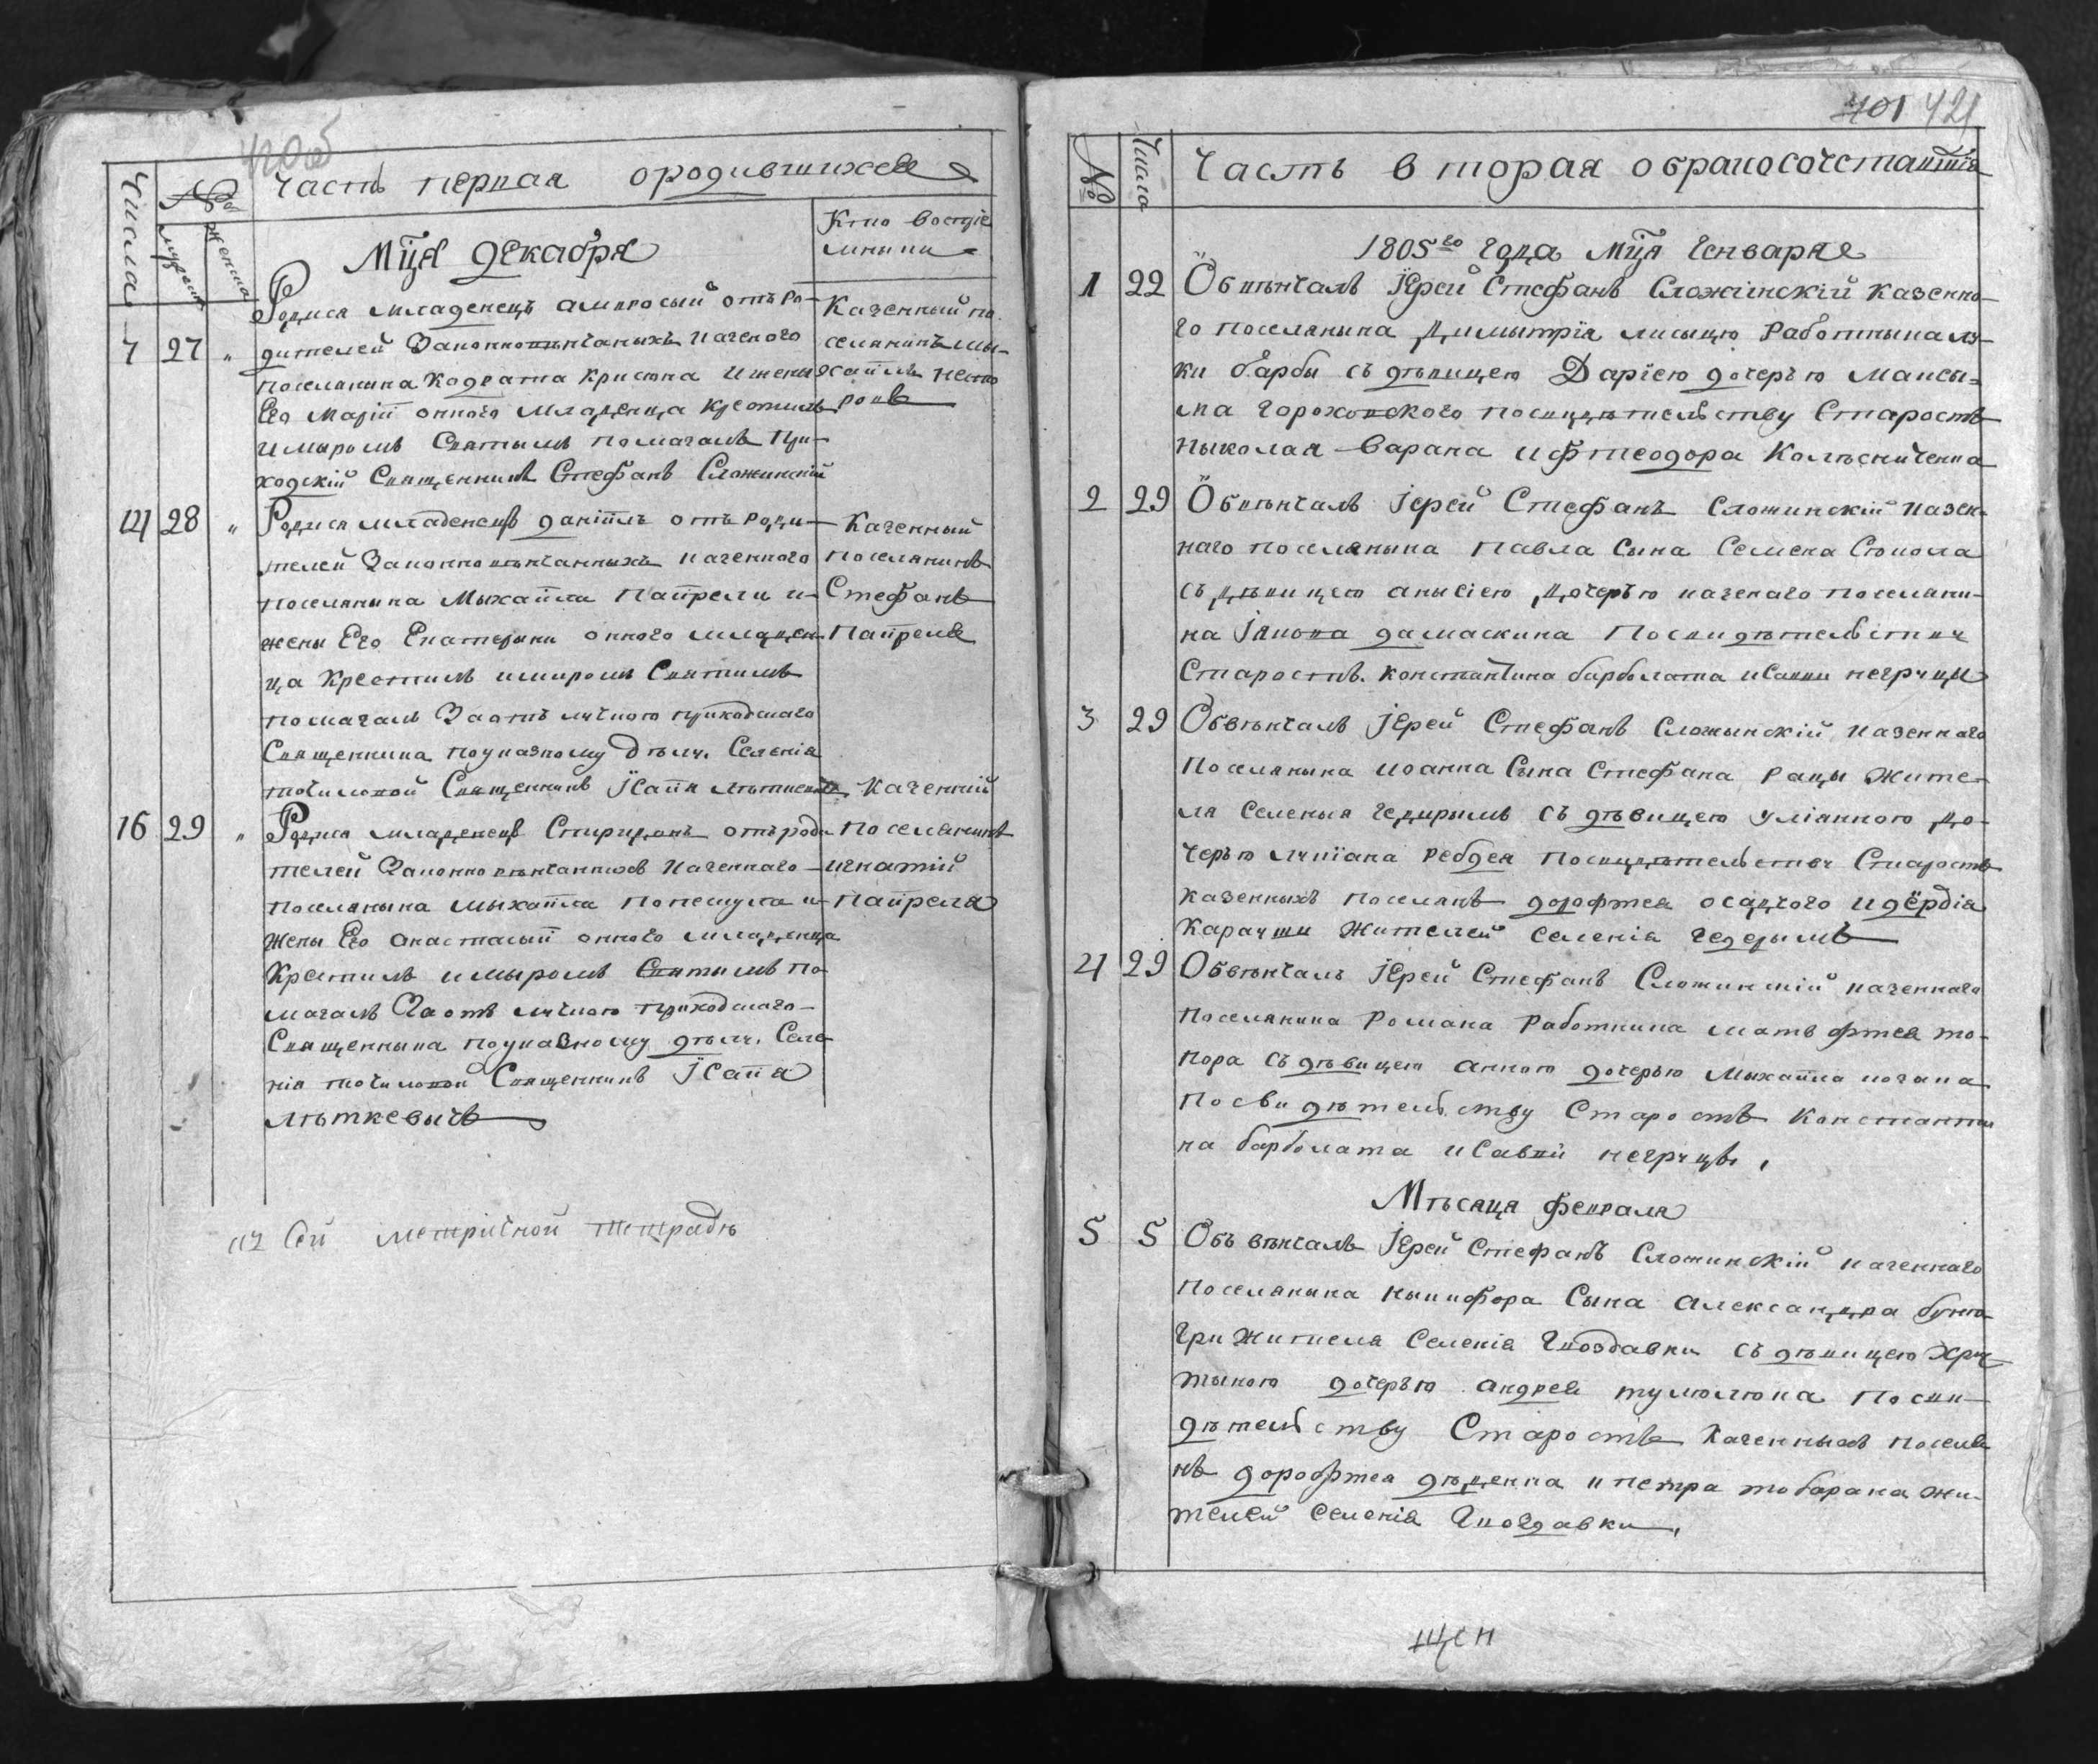 420об
Часть первая ородившихся
Числа
№
мужеска
женска
Кто воспріе
мники
Мца декабря
Родися младенецъ амвросый отъ ро-
7 27 " дителей Законновѣнчаныхъ казеного
поселянина Кодрата Крисюка и жены
Его Маріи онного младенца крестилъ
и мыромъ Святымъ помазалъ При-
ходскій Священникъ Стефанъ Сложинскій
Казенный по
селянинъ Мы-
хаилъ
14 28 " Родися младенецъ даніилъ отъ роди-
телей Законновѣнчанныхъ казенного
поселянина Мыхаила Паирели и
жены Его Екатерини онного младен-
ца Крестилъ и миромъ Святимъ
помазалъ За отъ лучного приходского
Священника поуказному дѣлу Селенія
точиловой Священникъ Ісаія
Казенный
поселянинъ
Стефанъ
Паиреля
16 29 " Родися младенецъ Спиридонъ отъ роди
телей Законновѣнчаннихъ казенного
поселянына Мыхаила попешула и
жены Его анастасыи онного младенца
Крестилъ и мыромъ Святимъ по
мазалъ За отъ лучного приходского
Священныка поуказному дѣлу Селе
нія точиловой Священникъ Ісаія
лѣткевычъ
Казенній
поселянинъ
игнатій
паиреля
Сей метричной тетрадѣ
401 421
№
Числа
Часть вторая обракосочетавшія
1805го года Мца Генваря
1 22 Обвѣнчалъ Іерей Стефанъ Сложінскій казенно-
го поселянына Димытрія лисыцю работныка лу-
ки барбы съ дѣвицею Даріею дочерью Максы-
ма Гороховского посвидѣтельству Старостъ
Ныколая Варана и фтеодора Колѣсниченка
2 29 Обвѣнчалъ Іерей Стефанъ Сложинскій казен-
наго поселянына Павла Сына Семена Сокола
съ дѣвицею анысіею дочерью казенаго поселяни-
на Іакова дамаскина Посвидѣтельству
Старостъ. Константина барболата и Савви негруци
3 29 Обвѣнчалъ Іерей Стефанъ Сложынскій казеннаго
Поселянына иоанна Сына Стефана рацы жите-
ля Селеныя гедирымъ съ дѣвицею уліанною до-
черью лукіана ребдея посвидѣтельству Старостъ
казенныхъ поселянъ дорофтея осадчого и дёрдія
Карауши жителей селенія гедерымъ
4 29 Обвѣнчалъ Іерей Стефанъ Сложинскій казеннаго
Поселянина Романа Работника матвфтея то-
пора съ дѣвицею анною дочерью Мыхаила
посвидѣтельству Старостъ Константи
на барболата и Савви негруцы,
Мѣсяца февраля
5 5 Объвѣнчалъ Іерей Стефанъ Сложинскій казеннаго
Поселянына ныкифора Сына александра
гри жителя Селенія Гвоздавки съ дѣвицею хри
тыною дочерью андрея тумолюка посви-
дѣтельству Старостъ казенныхъ поселя
нъ дорофтея дѣденка и петра тобарана жи-
телей селенія Гвоздавки,